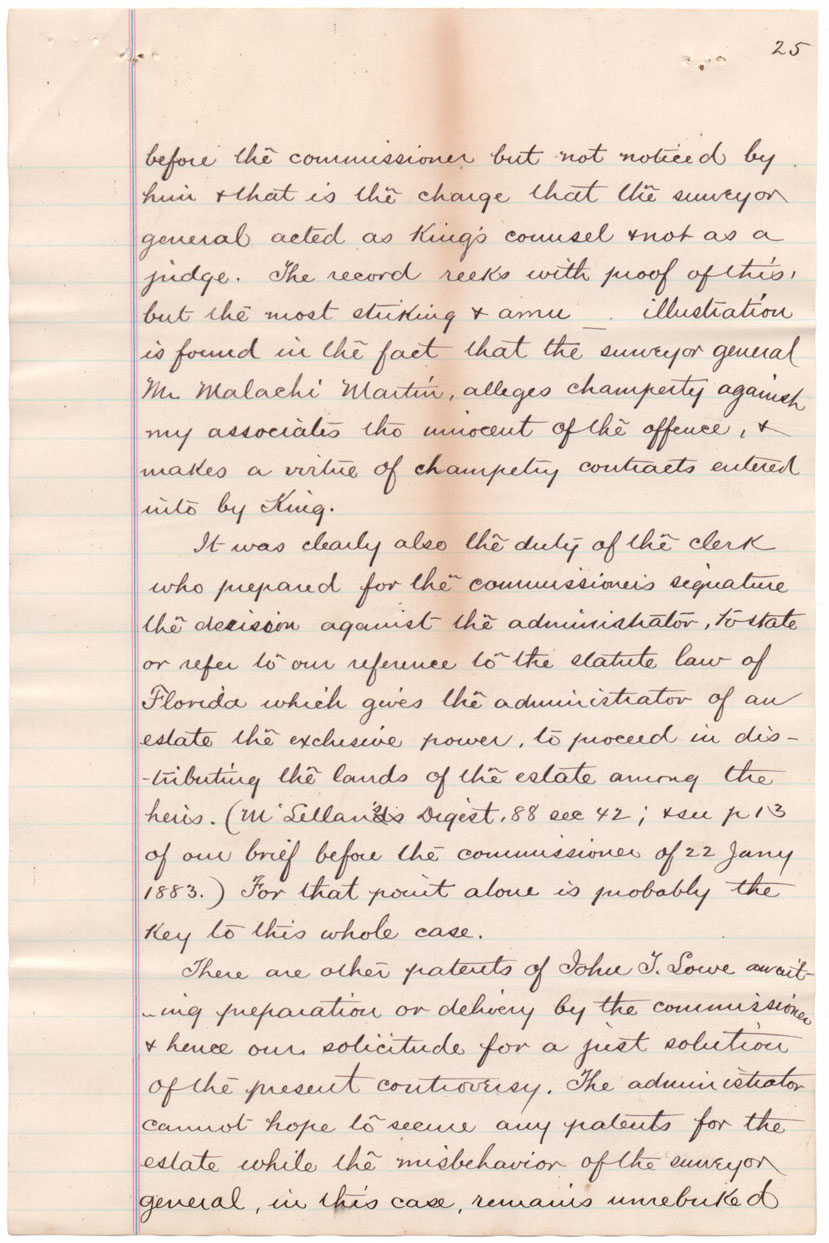 25
before the commissioner but not noticed by
him & that is the charge that the surveyor
general acted as King's counsel & not as a
judge. The record reeks with proof of this,
but the most striking & amu illustration
is found in the fact that the surveyor general
Mr Malachi Martin, alleges champerty against
my associates tho innocent of the offence, &
makes a virtue of champetry contracts entered
into by King.
It was clearly also the duty of the clerk
who prepared for the commissioner's signature
the decision against the administrator, to state
or refer to our reference to the statute law of
Florida which gives the administrator of an
estate the exclusive power, to proceed in dis-
-tributing the lands of the estate among the
heirs. (McLellan's Digest, 88 sec 42; & see p 13
of our brief before the commissioner of 22 Jany
1883.) For that point alone is probably the
key to this whole case.
There are other patents of John T. Lowe await-
-ing preparation or delivery by the commissioner
& hence our solicitude for a just solution
of the present controversy. The administrator
cannot hope to secure any patents for the
estate while the misbehavior of the surveyor
general, in this case, remains unrebuked